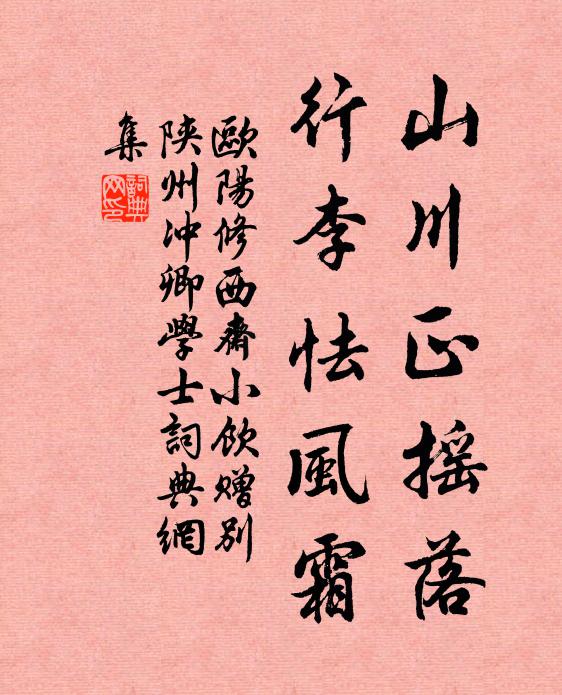 山川正摇落
行李怯風霜
歐陽修西齋小飲赠別
陝州冲卿學士詞典網
集
詞典
网印